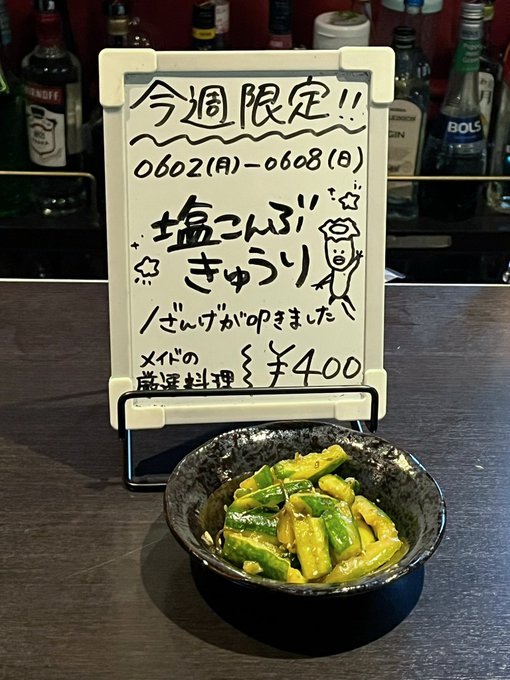 今週限定!!
0602(月)-0608(日)
塩こんぶ
きゅうり
ざんげが叩きました
メイドの
厳選料理
¥400
SMIRNOFF
GIN
BOLS